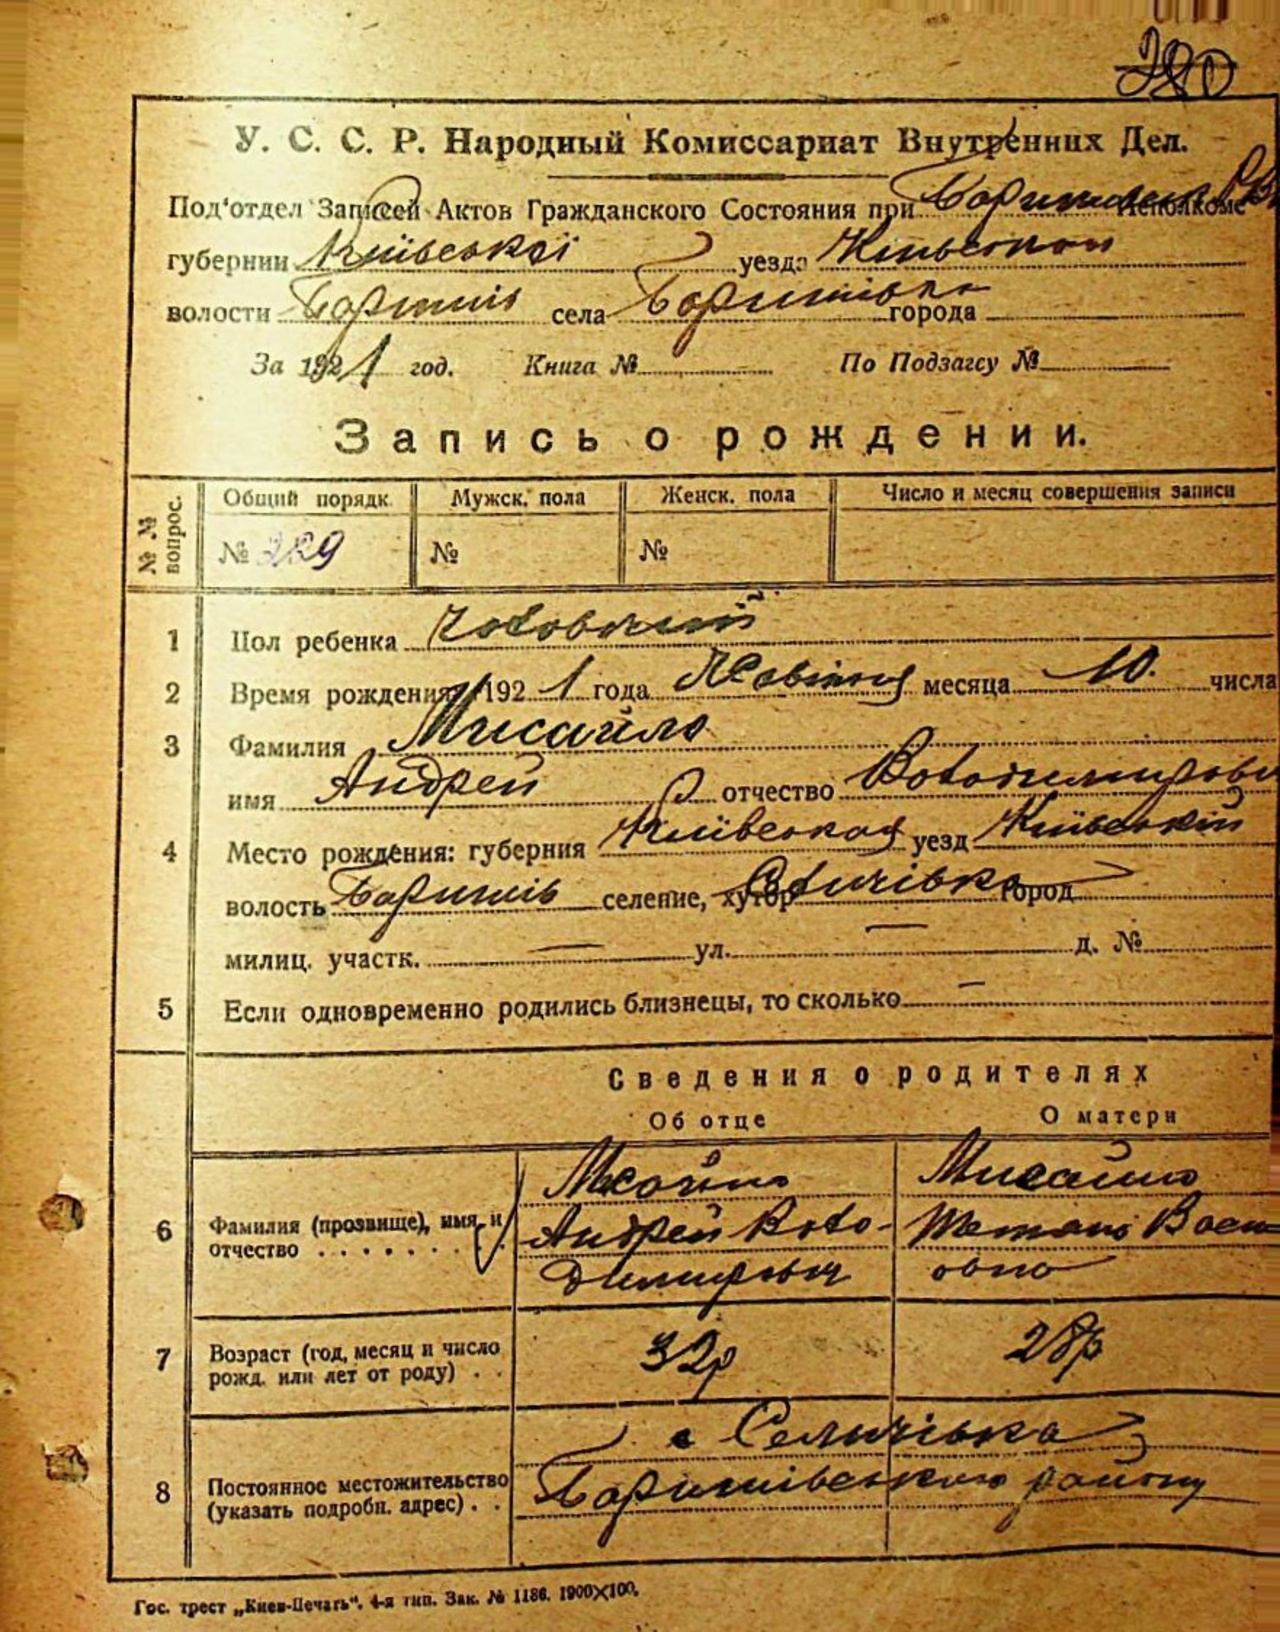 280
У. С. С. Р. Народный Комиссариат Внутренних Дел.
Под'отдел Записей Актов Гражданского Состояния при Исполкоме
губернии Київської уезда Київского
волости Баришів села Баришівка города
За 1921 год. Книга № По Подзагсу №
Запись о рождении.
№№ вопрос. Общий порядк. Мужск. пола Женск. пола Число и месяц совершения записи
№ 229 № №
1 Пол ребенка чоловічий
2 Время рождения 1921 года Жовтня месяца 10. числа
3 Фамилия Мисайло
имя Андрей отчество Володимирович
4 Место рождения: губерния Київская уезд Київський
волость Баришів селение, хутор Селичівка город
милиц. участк. — ул. — д. №
5 Если одновременно родились близнецы, то сколько —
Сведения о родителях
Об отце О матери
6 Фамилия (прозвище), имя и отчество
Мисайло Мисайло
Андрей Воло- Тетяна
димирович овна
7 Возраст (год, месяц и число рожд. или лет от роду) . . 32р 28р
8 Постоянное местожительство (указать подробн. адрес) . .
с Селичівка
Баришівського району
Гос. трест „Киев-Печать“. 4-я тип. Зак. № 1186. 1900×100.